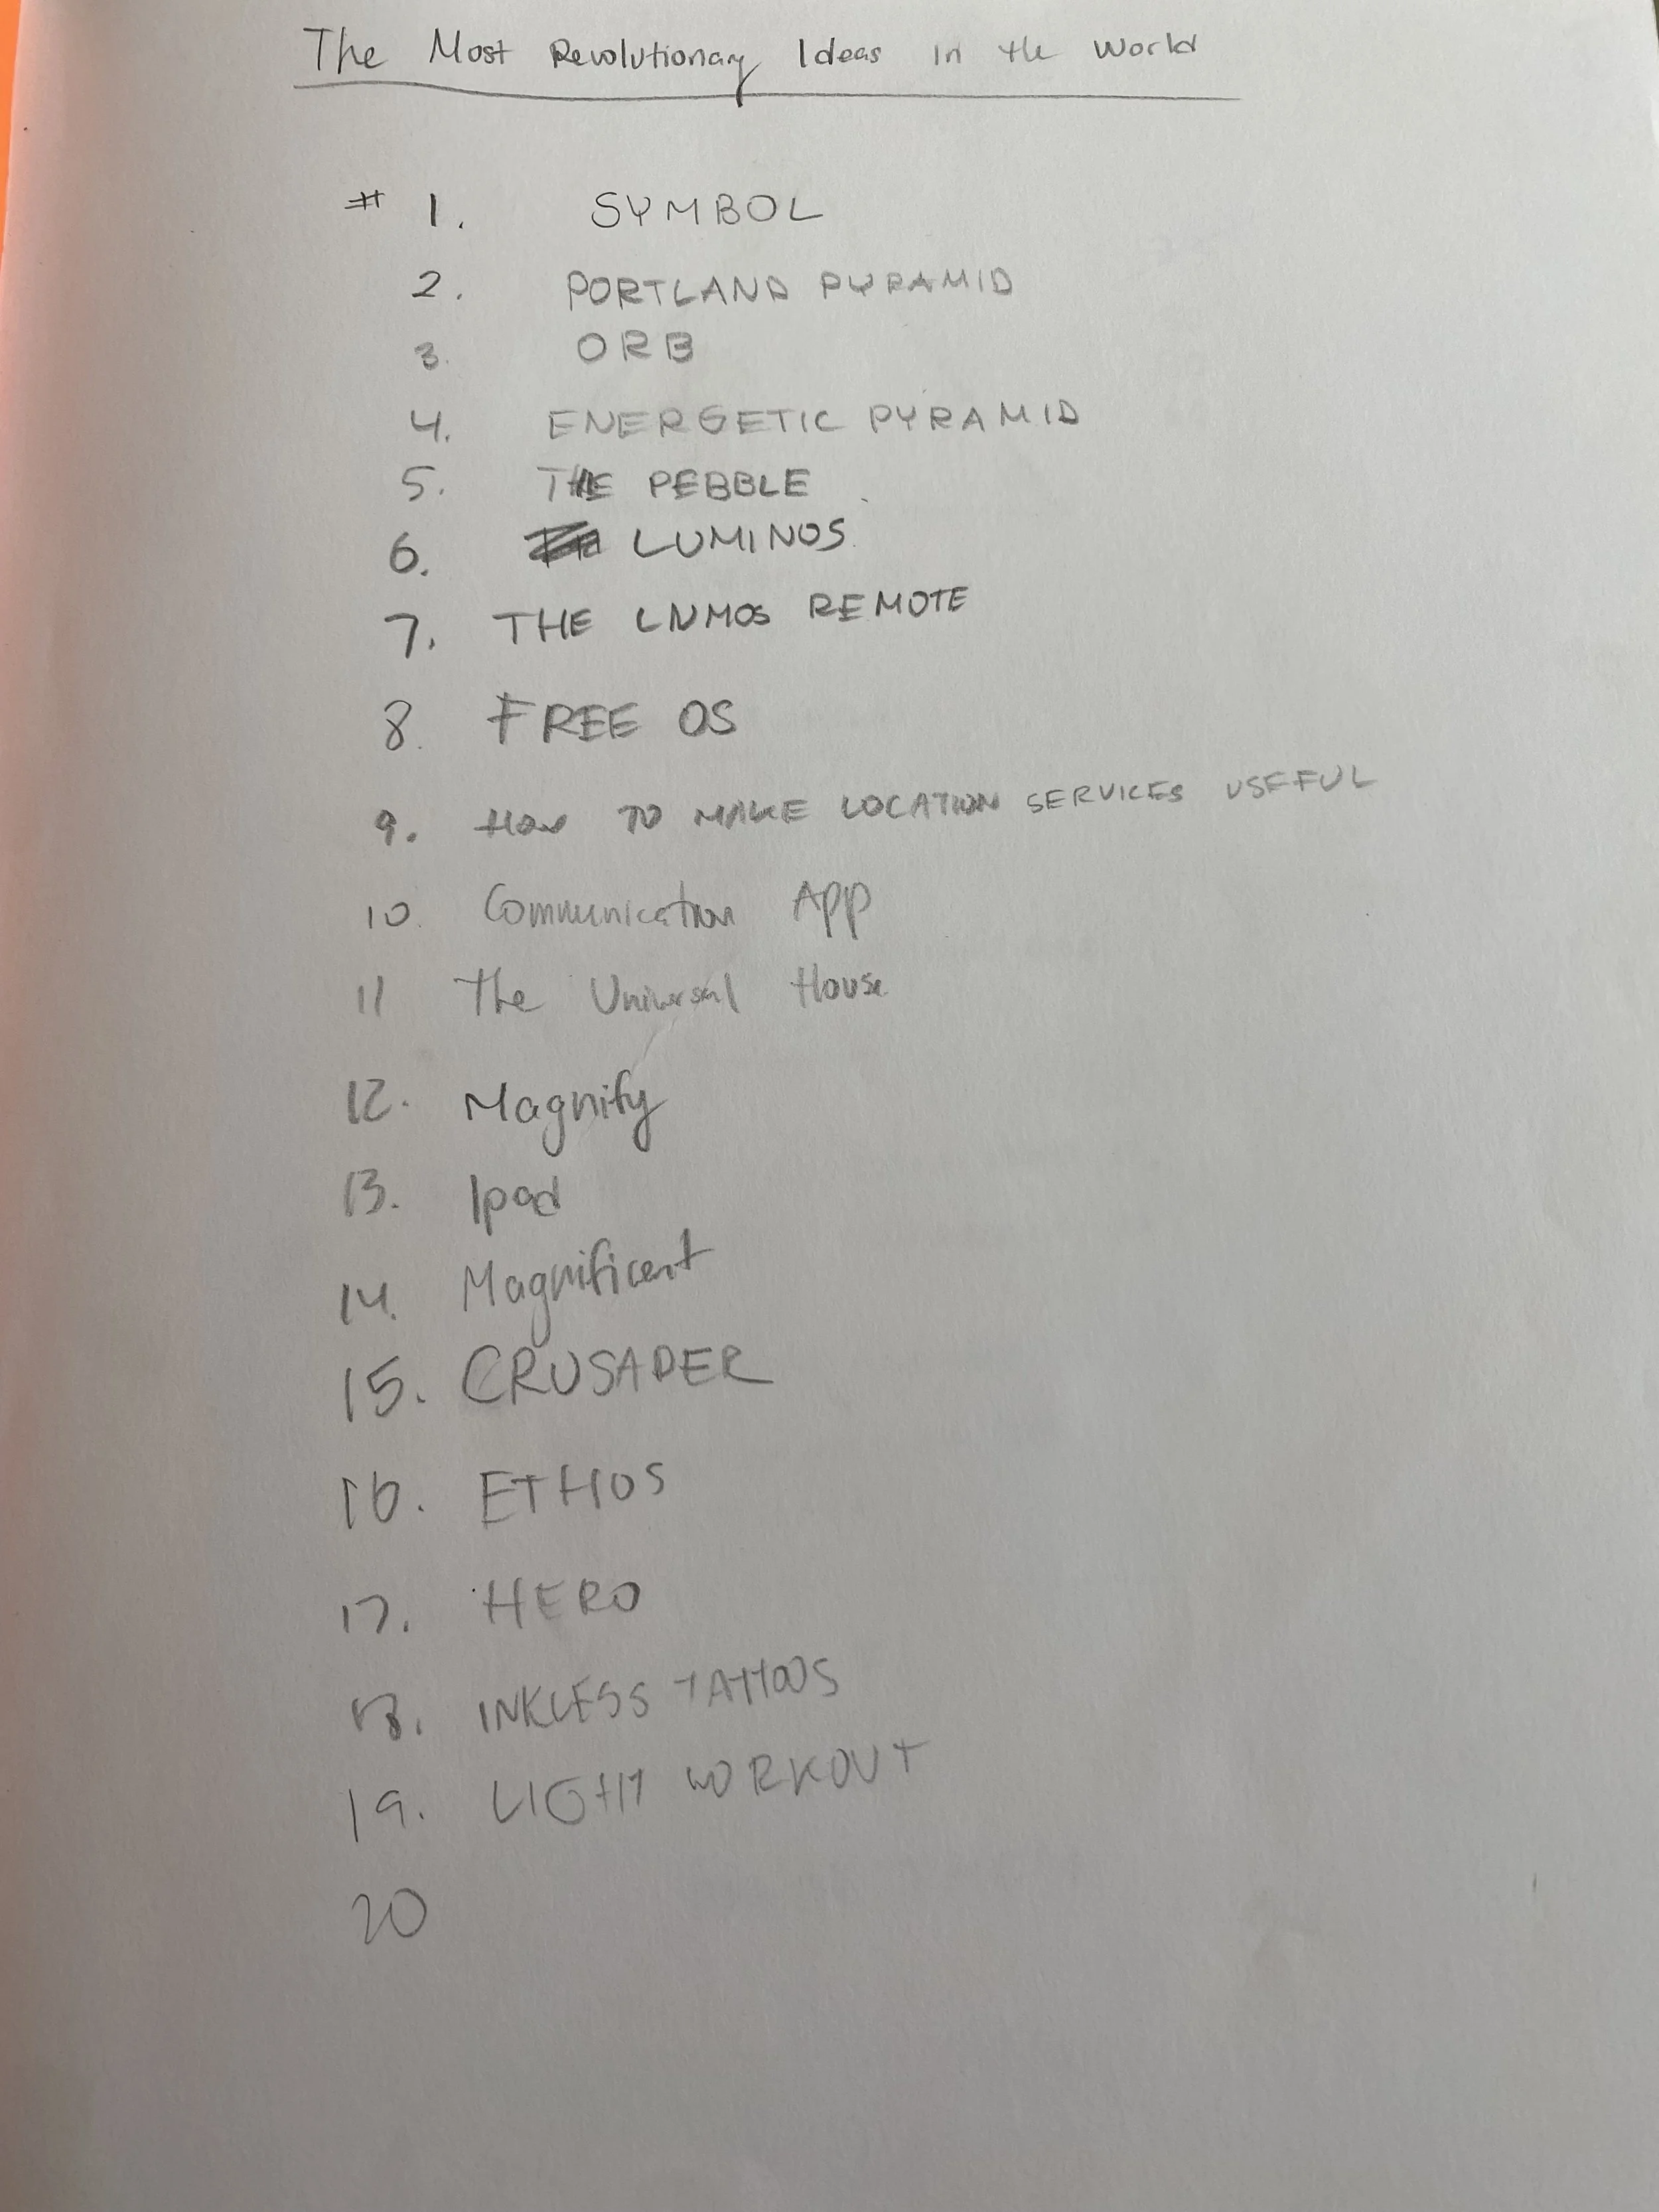 The Most Revolutionary Ideas in the World
# 1. SYMBOL
2. PORTLAND PYRAMID
3. ORB
4. ENERGETIC PYRAMID
5. THE PEBBLE
6. LUMINOS
7. THE LNMOS REMOTE
8. FREE OS
9. HOW TO MAKE LOCATION SERVICES USEFUL
10. Communication App
11 The Universal House
12. Magnify
13. Ipad
14. Magnificent
15. CRUSADER
16. ETHOS
17. HERO
18. INKLESS TATTOOS
19. LIGHT WORKOUT
20